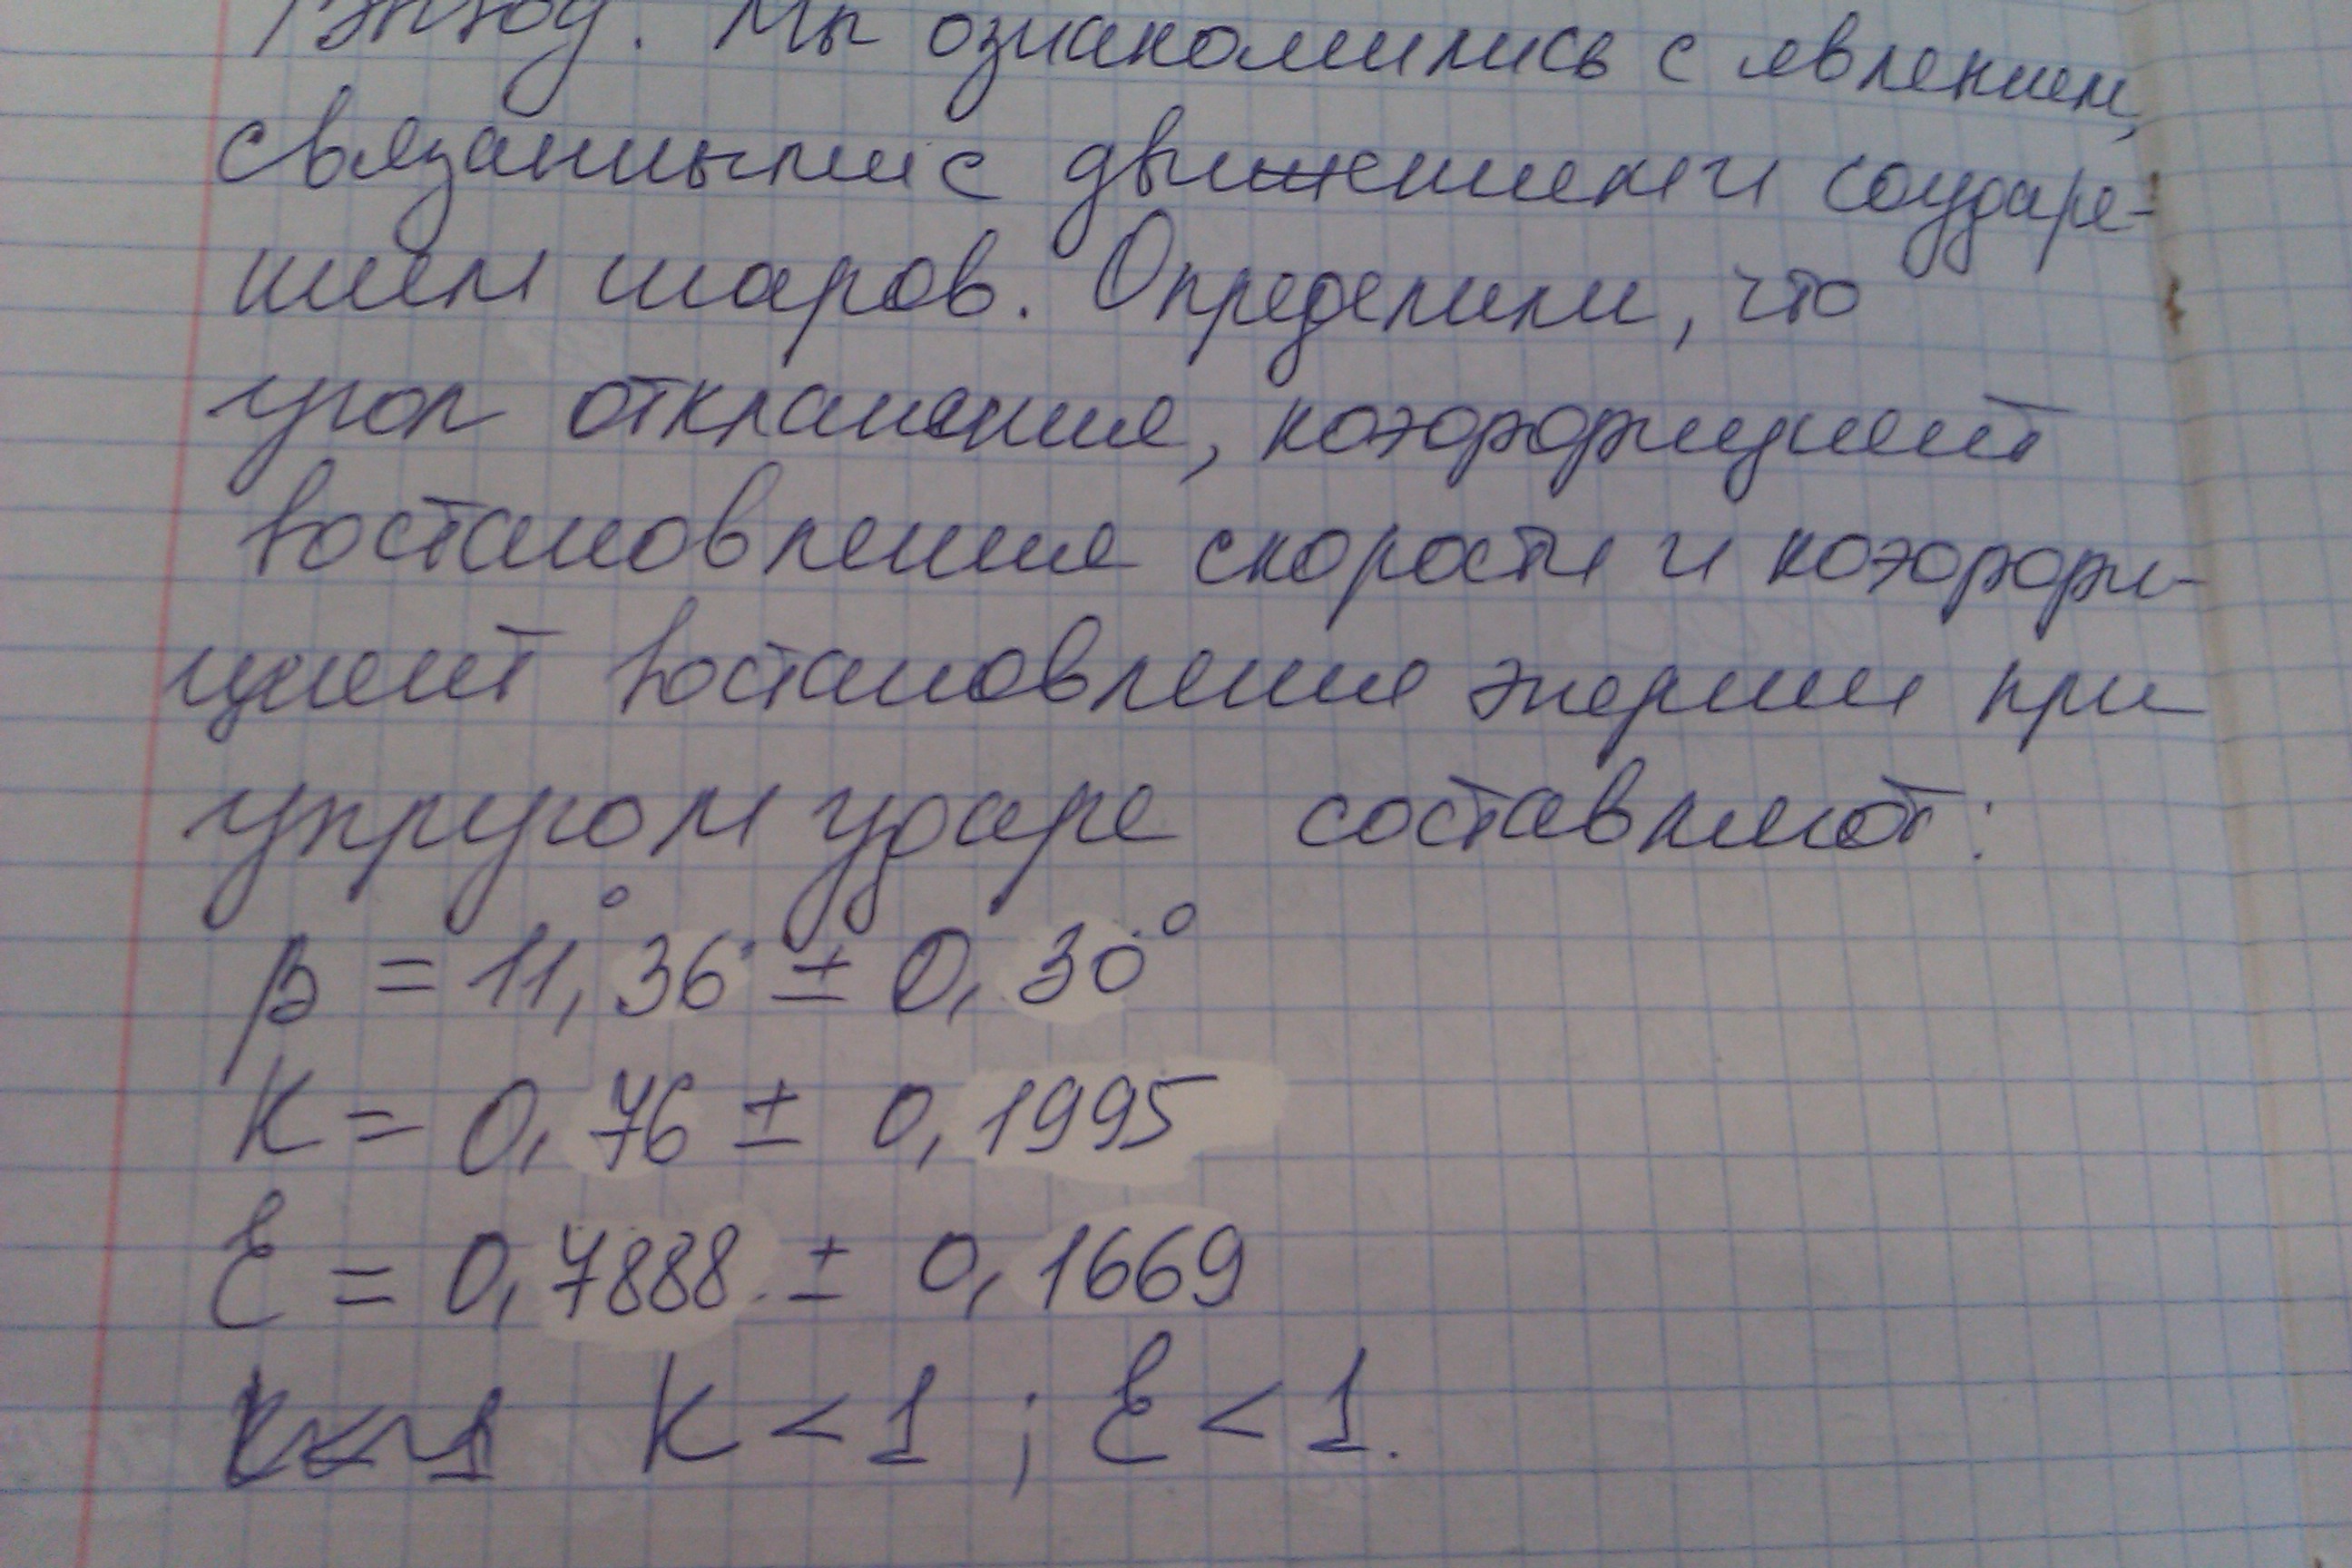 Вывод. Мы ознакомились с явлением,
связанными с движением и соударе-
нием шаров. Определили, что
угол откланения, коэффициент
востановления скорости и коэффи-
циент востановления энергии при
упругом ударе составляют:
β = 11,°36 ± 0,30°
K = 0,76 ± 0,1995
Ɛ = 0,7888 ± 0,1669
K < 1 ; Ɛ < 1.